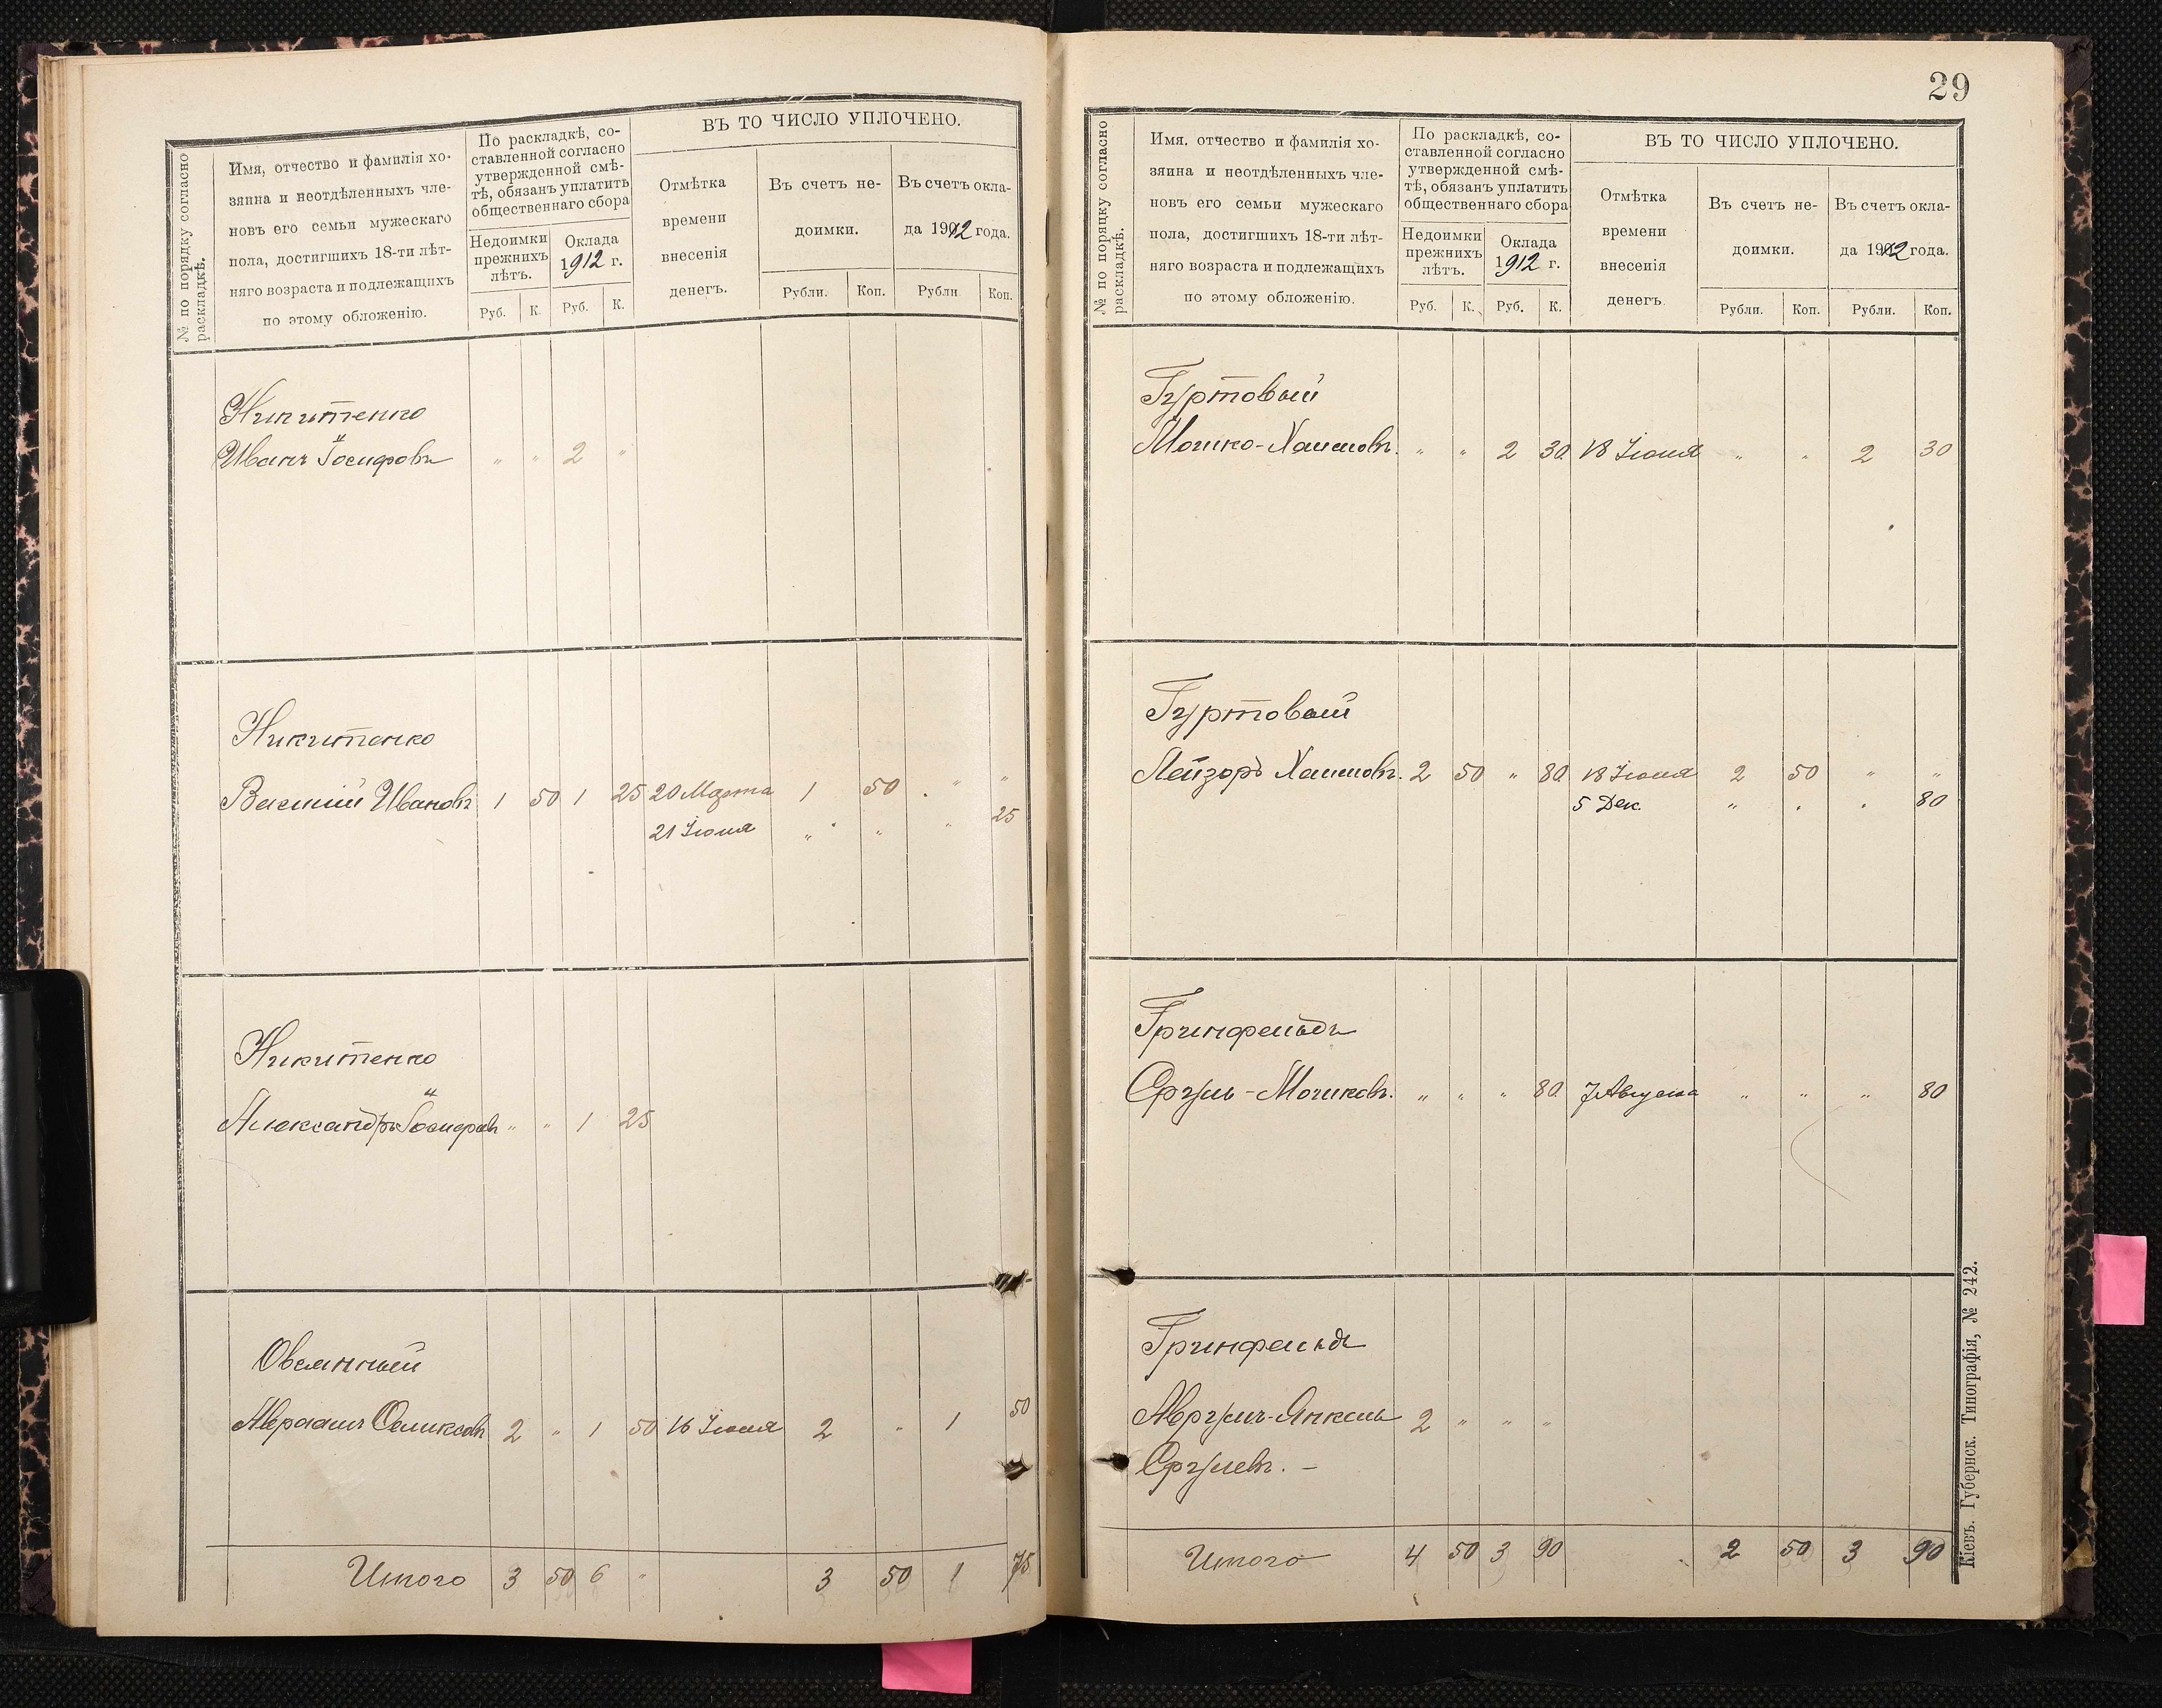 № по порядку согласно
раскладкѣ.
Имя, отчество и фамилія хо-
зяина и неотдѣленныхъ чле-
новъ его семьи мужескаго
пола, достигшихъ 18-ти лѣт-
няго возраста и подлежащихъ
по этому обложенію.
По раскладкѣ, со-
ставленной согласно
утвержденной смѣ-
тѣ, обязанъ уплатить
общественнаго сбора
Недоимки
прежнихъ
лѣтъ.
Оклада
1912 г.
Руб. К. Руб. К.
ВЪ ТО ЧИСЛО УПЛОЧЕНО.
Отмѣтка
времени
внесенія
денегъ.
Въ счетъ не-
доимки.
Въ счетъ окла-
да 1912 года.
Рубли. Коп. Рубли Коп.
Никитенко
Иванъ Іосифовъ " " 2 "
Никитенко
Василій Ивановъ 1 50 1 25 20 Марта 1 50 " "
21 Іюня " " " 25
Никитенко
Александръ Іосифовъ " " 1 25
Овсянный
Авраамъ Селиковъ 2 " 1 50 16 Іюня 2 " 1 50
Итого 3 50 6 " 3 50 1 75
29
№ по поряцку согласно
раскладкѣ.
Имя. отчество и фамилія хо-
зяина и неотдѣленныхъ чле-
новъ его семьи мужескаго
пола, достигшихъ 18-ти лѣт-
няго возраста и подлежащихъ
по этому обложенію.
По раскладкѣ, со-
ставленной согласно
утвержденной смѣ-
тѣ, обязанъ уплатить
общественнаго сбора
Недоимки
прежнихъ
лѣтъ.
Оклада
1912 г.
Руб. К. Руб. К.
ВЪ ТО ЧИСЛО УПЛОЧЕНО.
Отмѣтка
времени
внесенія
денегъ
Въ счетъ не-
доимки.
Въ счетъ окла-
да 1912 года.
Рубли. Коп. Рубли. Коп.
Гуртовый
Мошко-Хаимовъ. " " 2 30 18 Іюня " " 2 30
Гуртовый
Лейзоръ Хаимовъ. 2 50 " 80 18 Іюня 2 50 " "
5 Дек. " " " 80
Гринфельдъ
Сруль-Мошковъ. " " " 80 7 Августа " " " 80
Гринфельдъ
Аврумъ-Янкель 2 " " "
Срулевъ. -
Итого 4 50 3 90 2 50 3 90
Кіевъ. Губернск. Типографія, № 242.